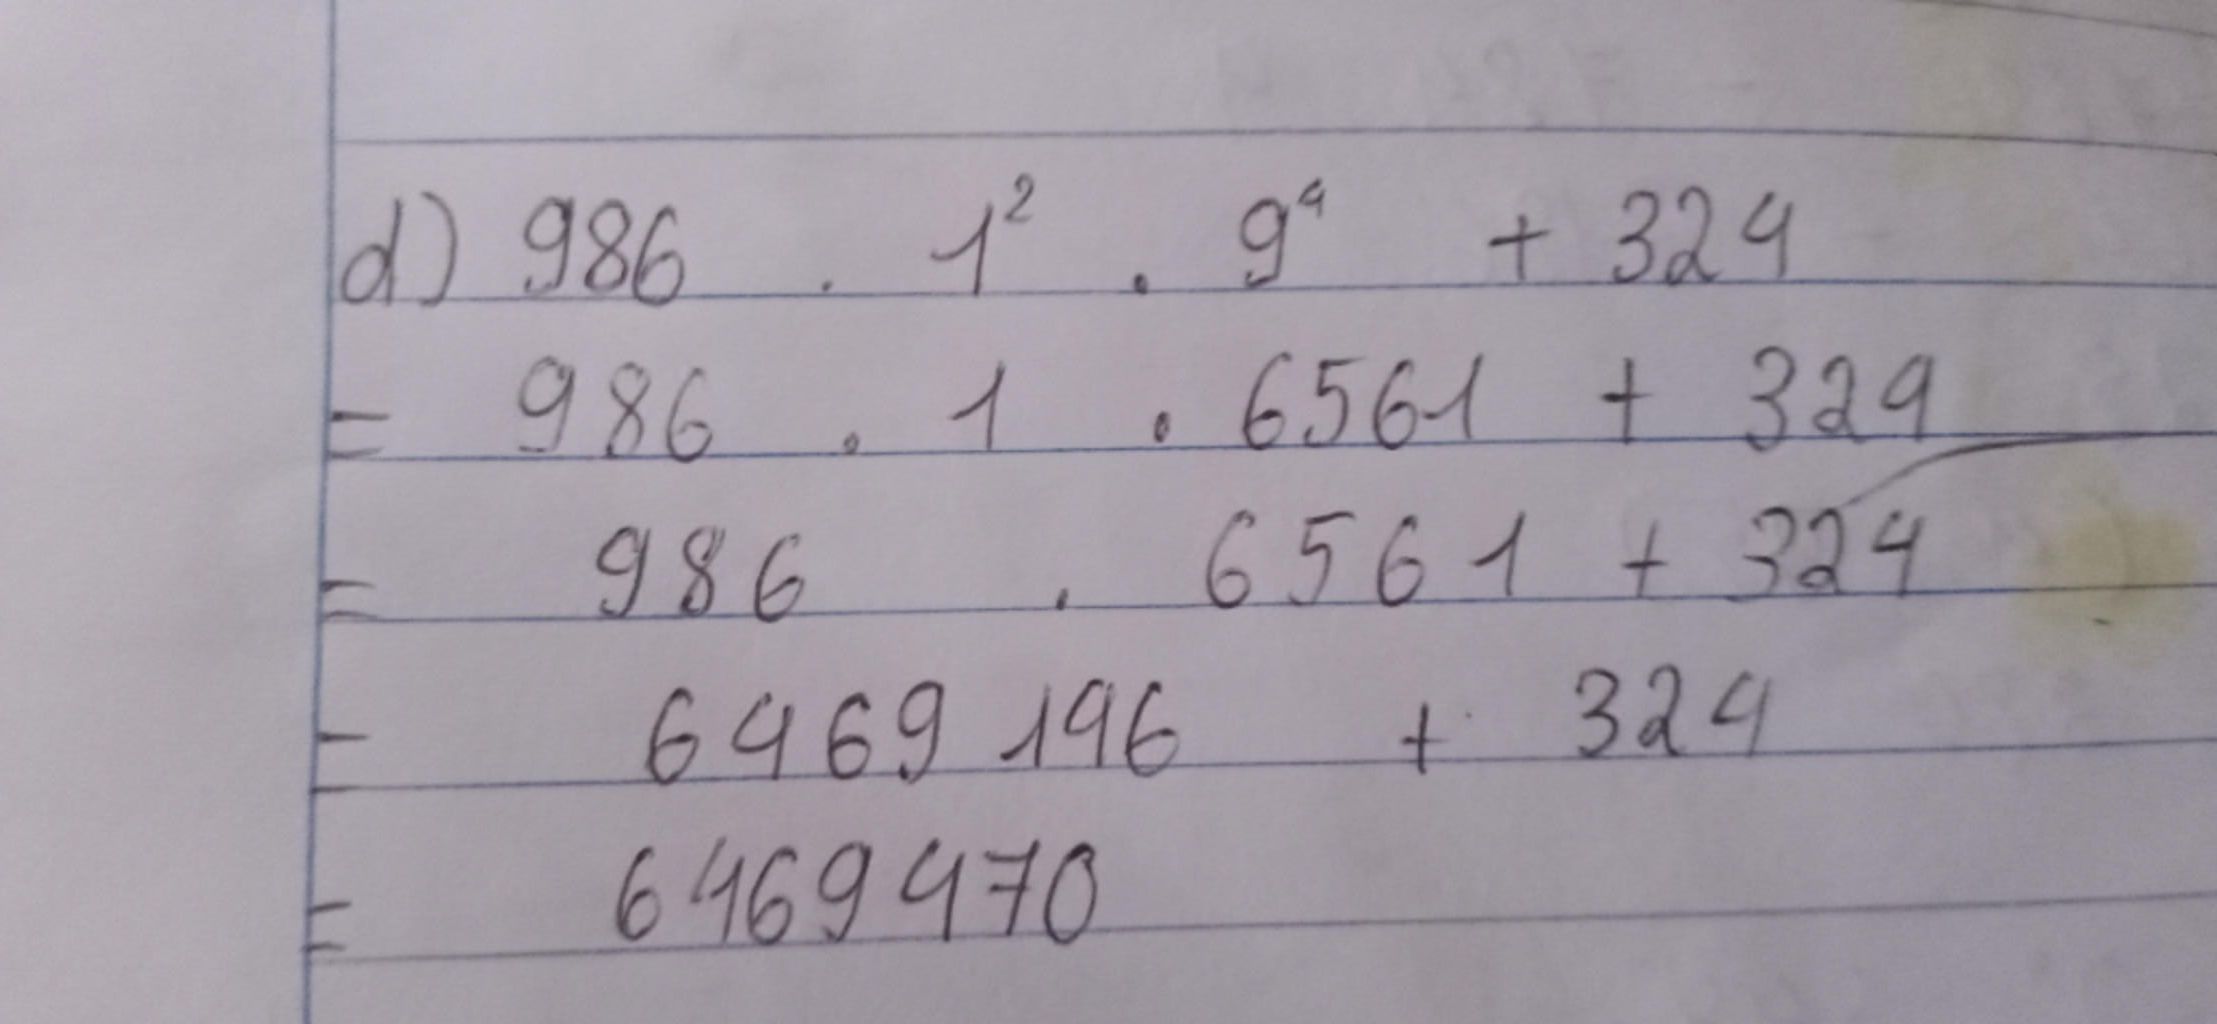 d) 986 . 1² . 9⁴ + 324
= 986 . 1 . 6561 + 324
= 986 . 6561 + 324
= 6469146 + 324
= 6469470